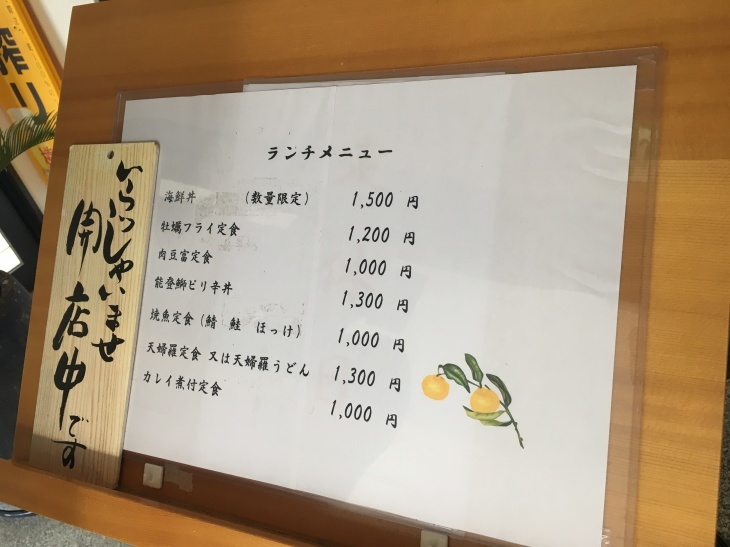 搾り
いらっしゃいませ
開店中です
ランチメニュー
海鮮丼 （数量限定） 1,500 円
牡蠣フライ定食 1,200 円
肉豆富定食 1,000 円
能登鰤ピリ辛丼 1,300 円
焼魚定食（鯖 鮭 ほっけ） 1,000 円
天婦羅定食 又は天婦羅うどん 1,300 円
カレイ煮付定食 1,000 円